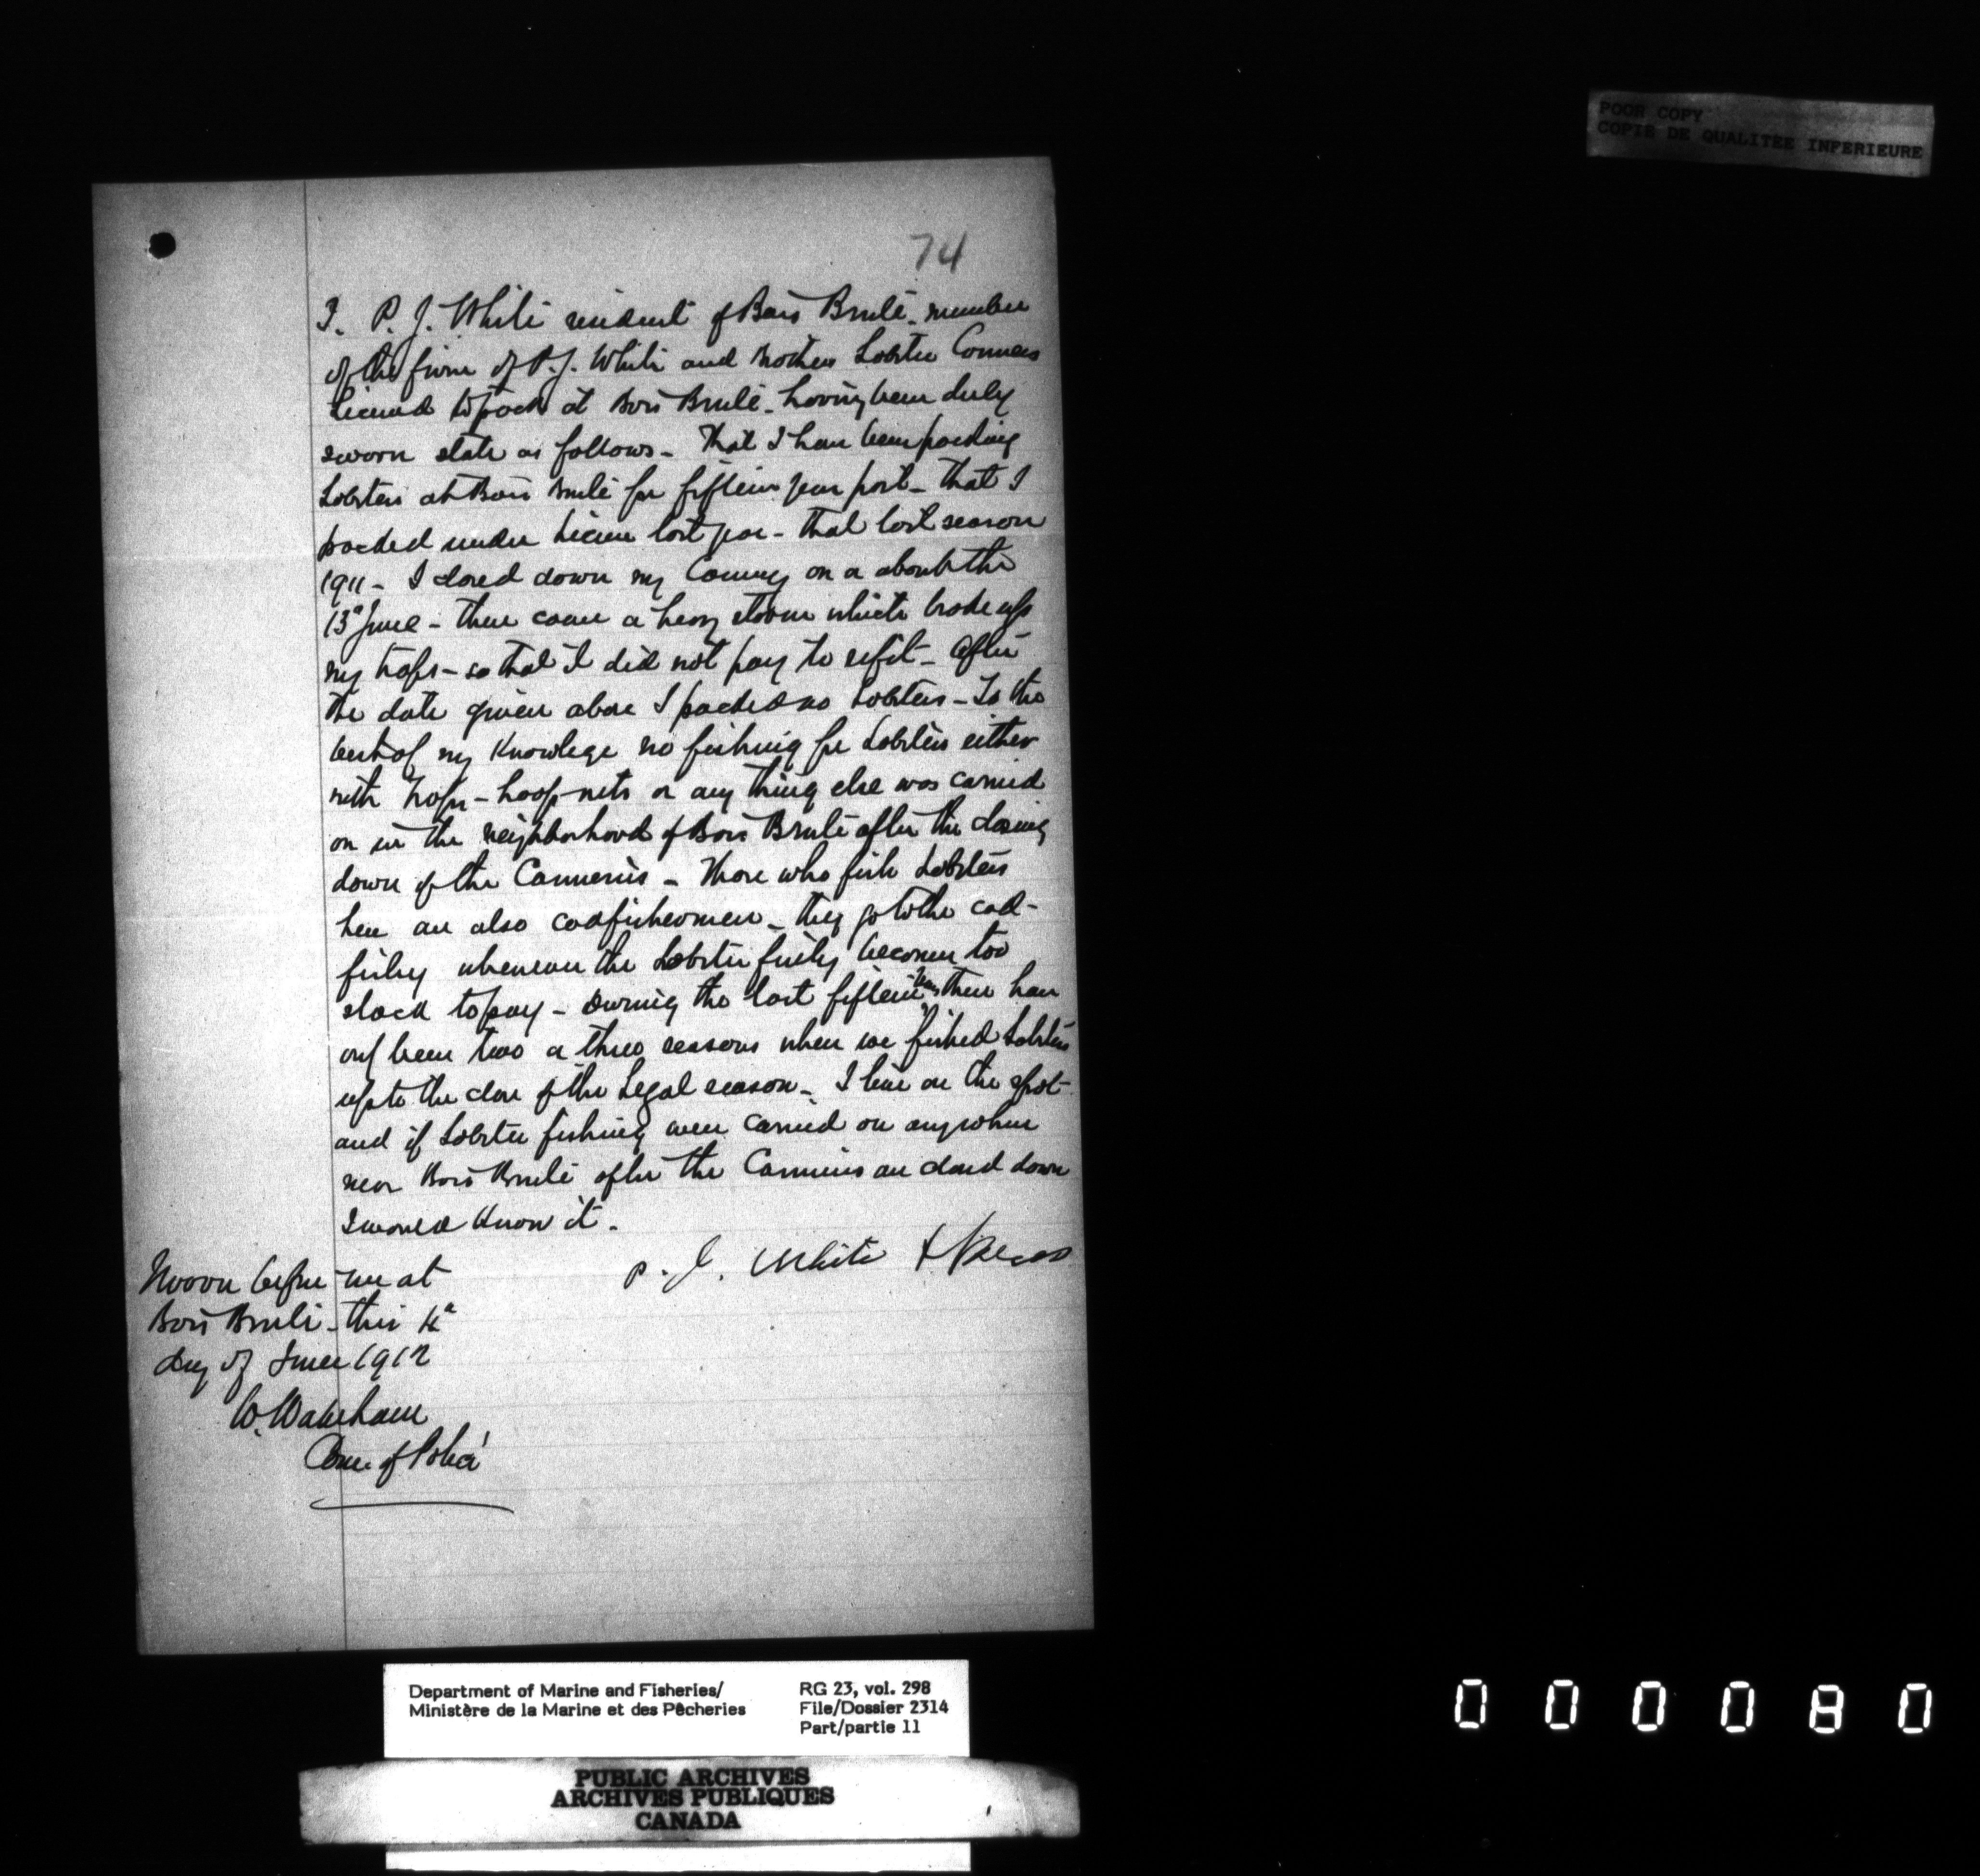 POOR COPY
COPIE DE QUALITEE INFERIEURE
74
I. P. J. White resident of Bois Brulé. member
of the firm of P. J. White and Brothers Lobster Canners
Licensed to pack at Bois Brulé. having been duly
sworn state as follows - That I have been packing
Lobsters at Bois Brulé for fifteen years past - that I
packed under License last year - that last season
1911 - I closed down my Cannery on or about the
13th June - there came a heavy storm which broke up
my traps - so that I did not pay to refit - After
the date given above I packed no Lobsters - To the
best of my Knowlege no fishing for Lobsters either
with traps - hoop nets or any thing else was carried
on in the neighborhood of Bois Brulé after the closing
down of the Canneries - Those who fish Lobsters
here are also codfishermen - they go to the cod-
fishery whenever the Lobster fishery becomes too
slack to pay - During the last fifteen years there have
only been two or three seasons when we fished Lobsters
up to the close of the Legal season - I live on the spot
and if Lobster fishing were carried on anywhere
near Bois Brulé after the Canneries are closed down
I would Know it -
P. J. White &
Sworn before me at
Bois Brulé - this
day of June 1912
W. Wakeham
Com. of Police
Department of Marine and Fisheries/
Ministère de la Marine et des Pêcheries
RG 23, vol. 298
File/Dossier 2314
Part/partie 11
PUBLIC ARCHIVES
ARCHIVES PUBLIQUES
CANADA
000080